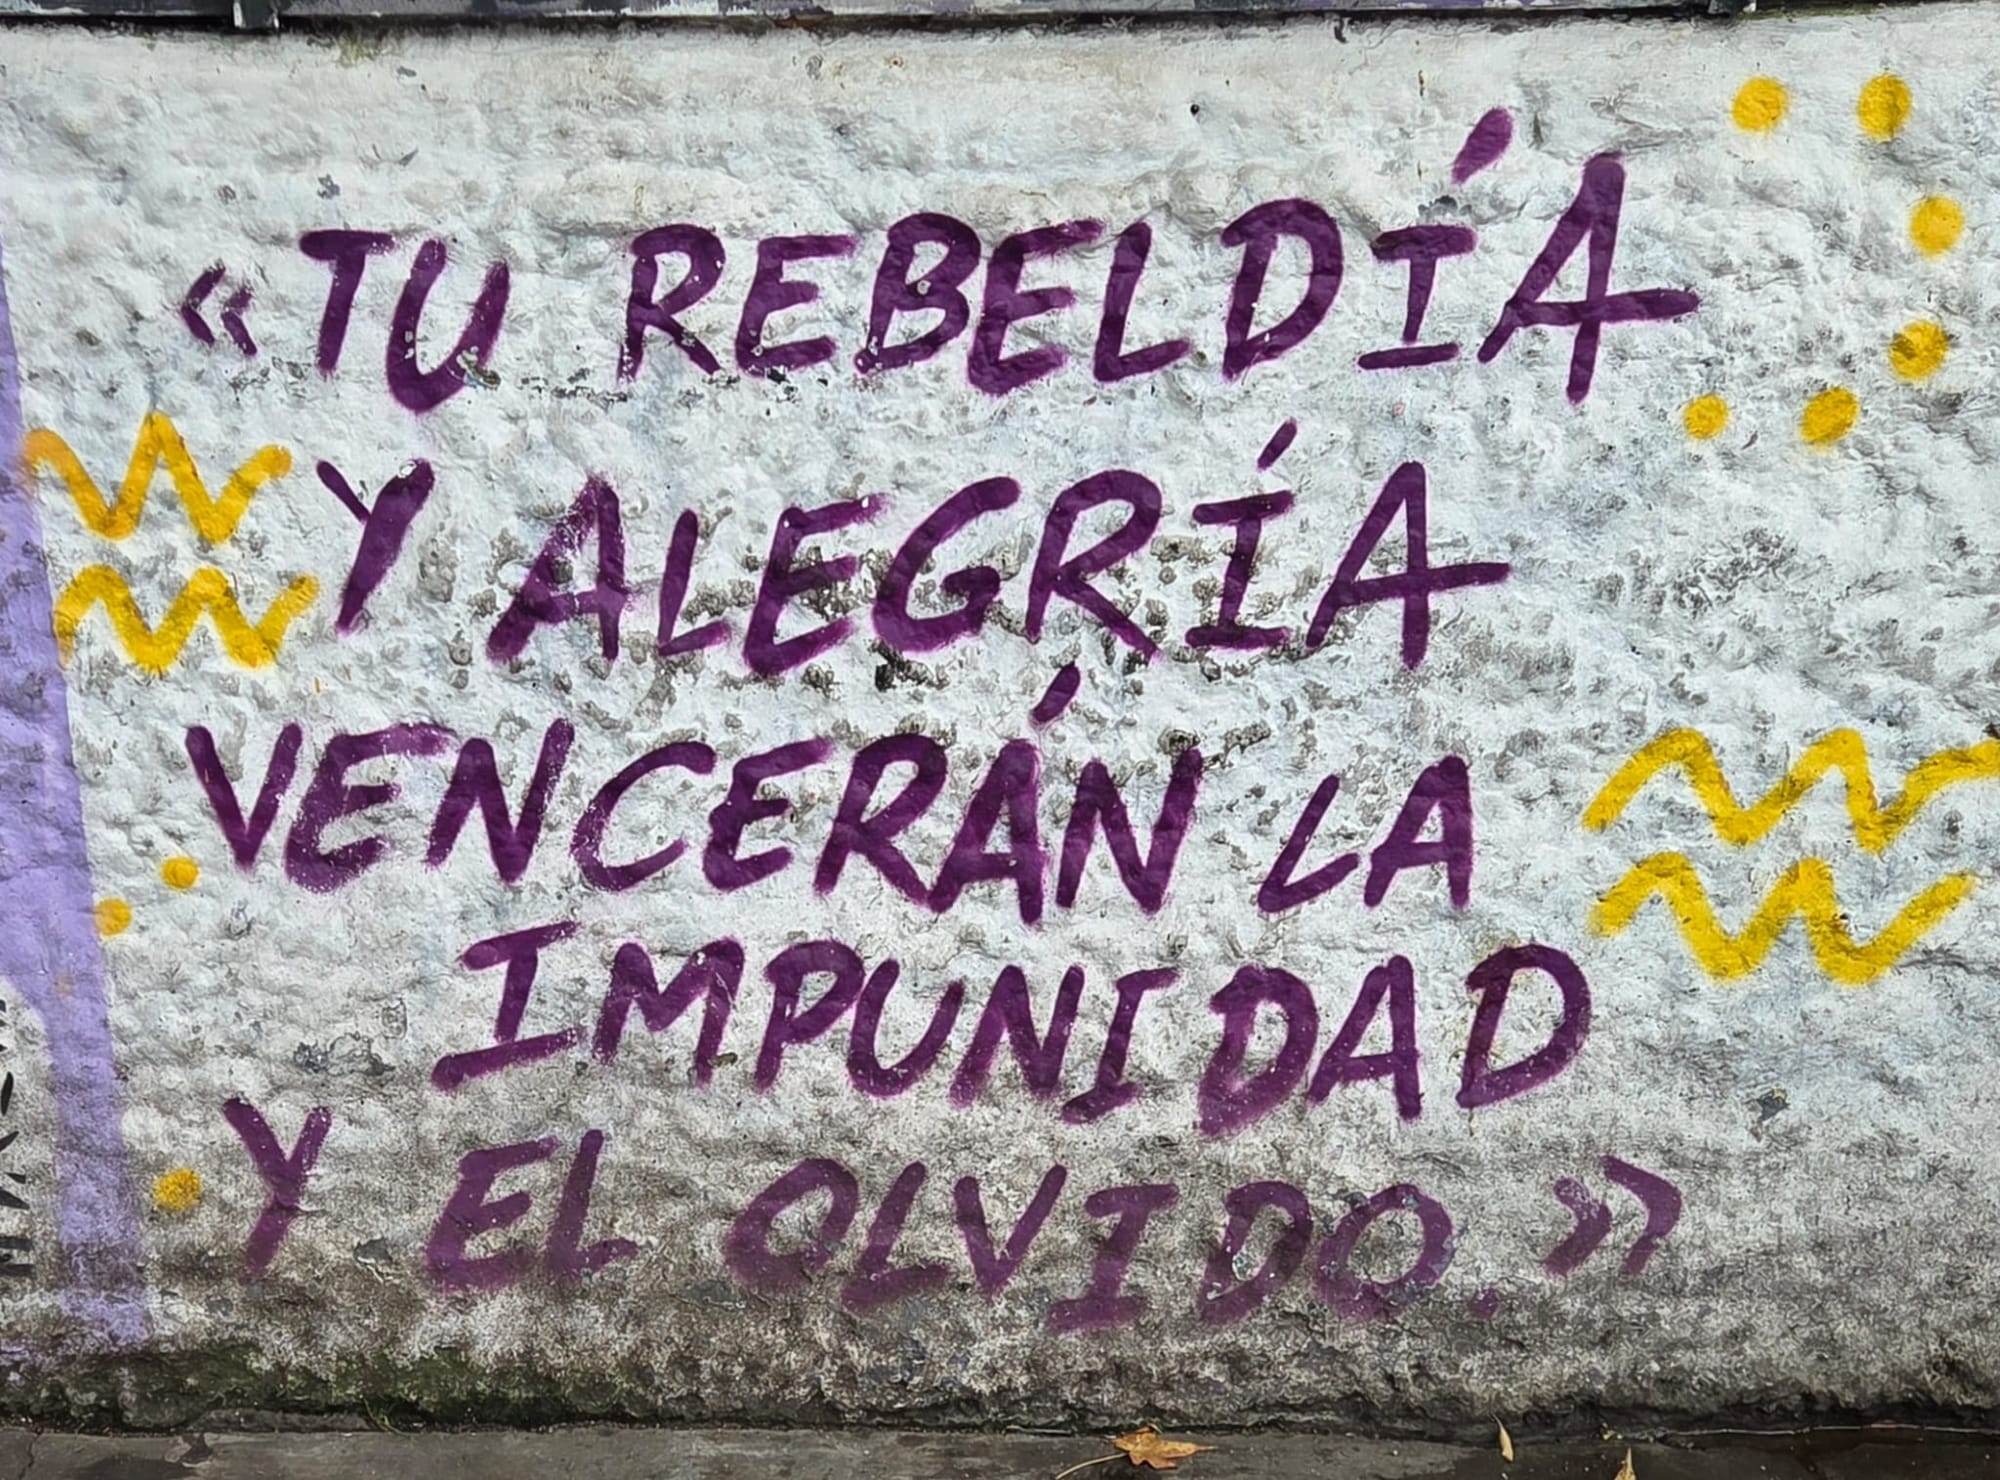 «TU REBELDÍA
Y ALEGRÍA
VENCERÁN LA
IMPUNIDAD
Y EL OLVIDO.»